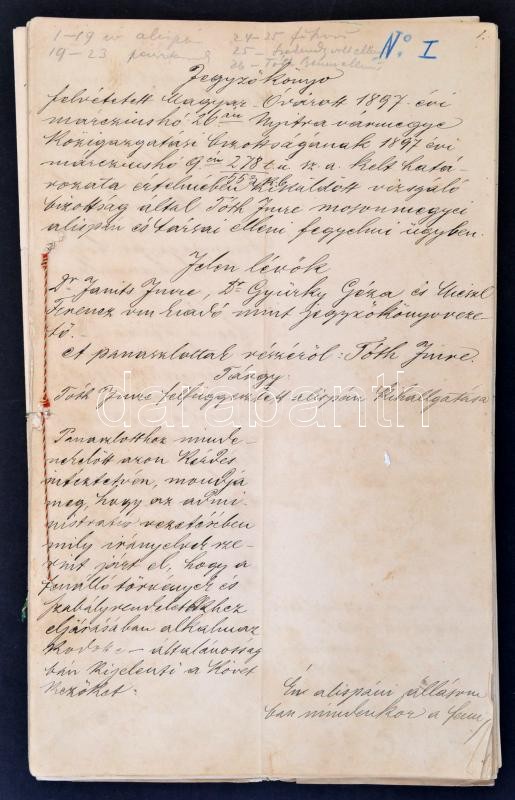 1-19 iv alispán
19-23
24-25 főkönyv
25-
26- Tóth
No I
1.
Jegyzőkönyv
felvétetett Magyar-Óvárott 1897. évi
marcziushó 26án Nyitra vármegye
közigazgatási bizottságának 1897 évi
márcziushó 9én 278 sz. a. kelt hatá-
rozata értelmében kiküldött vizsgáló
bizottság által Tóth Imre mosonmegyei
alispán és társai elleni fegyelmi ügyben.
Jelen lévők
Dr Janits Imre, Dr Gyürky Géza és
Ferencz vm kiadó mint jegyzőkönyvveze-
tő. -
A panaszlottak részéről: Tóth Imre.
Tárgy:
Tóth Imre felfüggesztett alispán kihallgatása
darabanth
Panaszlotthoz minde-
nekelőtt azon kérdés
intéztetvén, mondja
meg, hogy az admi-
nistratio vezetésében
mily irányelvek sze-
rint járt el, hogy a
fennálló törvények és
szabályrendeletekhez
eljárásában alkalmaz
kodott-e – általánosság
ban kijelenti a követ
kezőket:
Én alispáni állásom
ban mindenkor a fenn